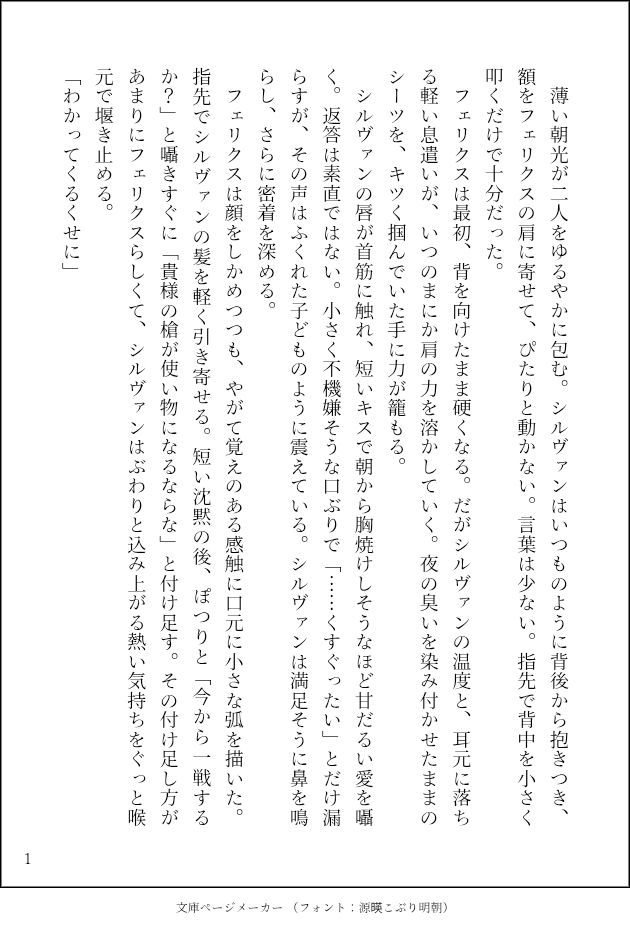 薄い朝光が二人をゆるやかに包む。シルヴァンはいつものように背後から抱きつき、
額をフェリクスの肩に寄せて、ぴたりと動かない。言葉は少ない。指先で背中を小さく
叩くだけで十分だった。
　フェリクスは最初、背を向けたまま硬くなる。だがシルヴァンの温度と、耳元に落ち
る軽い息遣いが、いつのまにか肩の力を溶かしていく。夜の臭いを染み付かせたままの
シーツを、キツく掴んでいた手に力が籠もる。
　シルヴァンの唇が首筋に触れ、短いキスで朝から胸焼けしそうなほど甘だるい愛を囁
く。返答は素直ではない。小さく不機嫌そうな口ぶりで「……くすぐったい」とだけ漏
らすが、その声はふくれた子どものように震えている。シルヴァンは満足そうに鼻を鳴
らし、さらに密着を深める。
　フェリクスは顔をしかめつつも、やがて覚えのある感触に口元に小さな弧を描いた。
指先でシルヴァンの髪を軽く引き寄せる。短い沈黙の後、ぽつりと「今から一戦する
か？」と囁きすぐに「貴様の槍が使い物になるならな」と付け足す。その付け足し方が
あまりにフェリクスらしくて、シルヴァンはぶわりと込み上がる熱い気持ちをぐっと喉
元で堰き止める。
「わかってくるくせに」
1
文庫ページメーカー（フォント：源暎こぶり明朝）